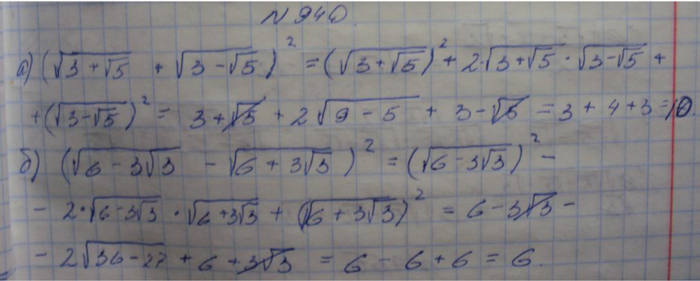 N 940.
а) (√(3+√5) + √(3-√5))² = (√(3+√5))² + 2·√(3+√5)·√(3-√5) +
+(√(3-√5))² = 3+√5 + 2√(9-5) + 3-√5 = 3+4+3=10.
б) (√(6-3√3) - √(6+3√3))² = (√(6-3√3))² -
- 2·√(6-3√3)·√(6+3√3) + (√(6+3√3))² = 6-3√3 -
- 2√(36-27) + 6 + 3√3 = 6 - 6 + 6 = 6.